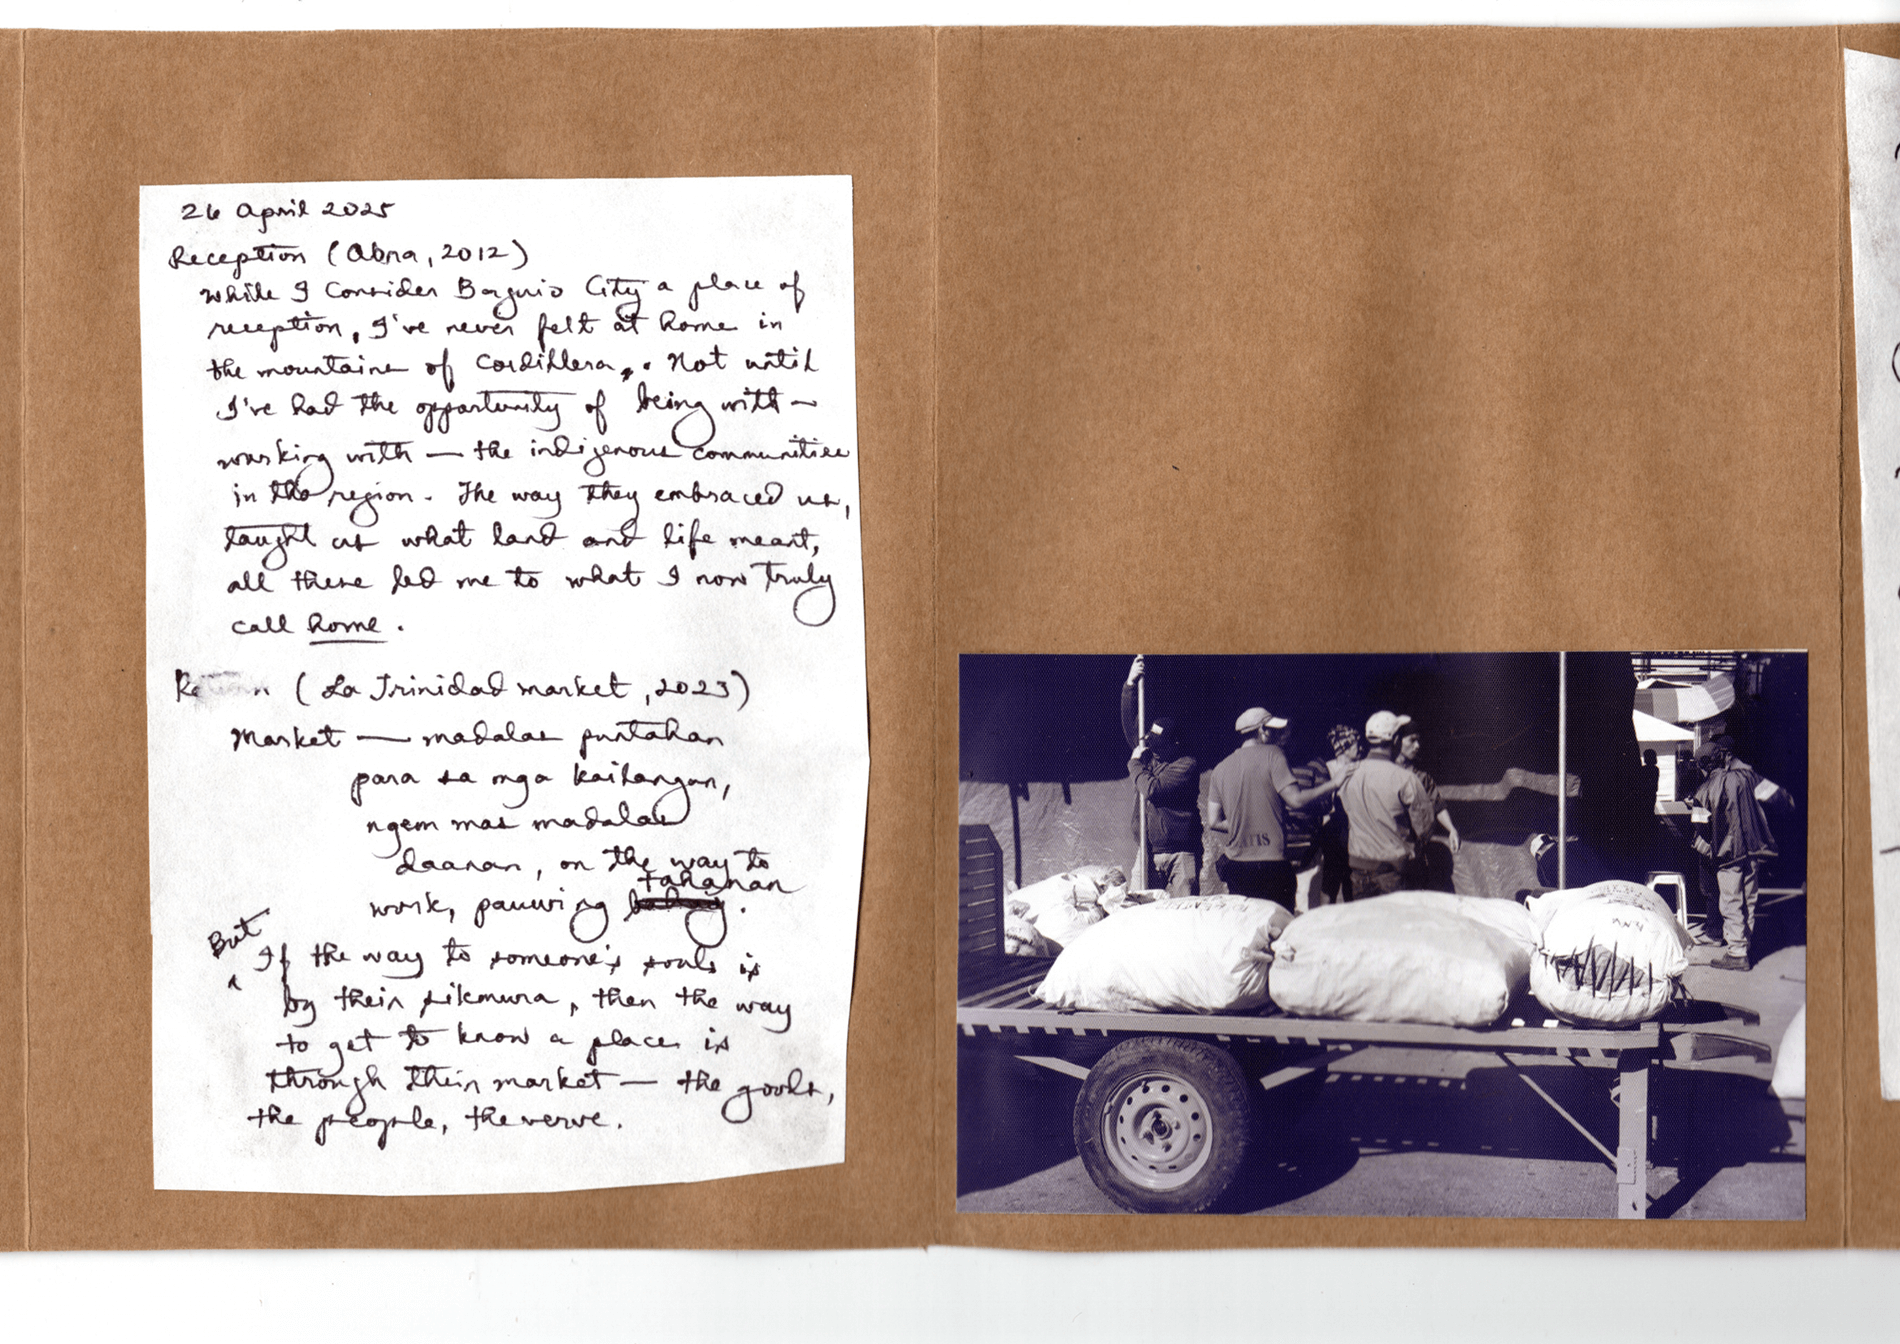 26 April 2025
Reception (Abra, 2012)
While I consider Baguio City a place of
reception, I've never felt at home in
the mountains of Cordillera. Not until
I've had the opportunity of being with –
working with — the indigenous communities
in the region. The way they embraced us,
taught us what land and life meant,
all these led me to what I now truly
call home.
Return (La Trinidad market, 2023)
Market — madalas puntahan
para sa mga kailangan,
ngem mas madalas
daanan, on the way to
tahanan
work, pauwing .
But
If the way to someone's souls is
by their sikmura, then the way
to get to know a place is
through their market — the goods,
the people, the verve.